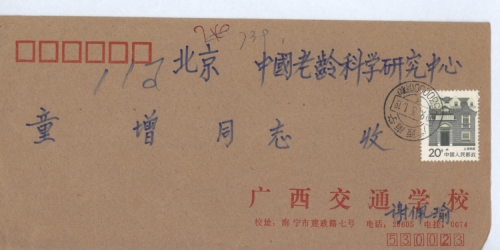 北京 中國老龄科学研究中心
童增同志 收
20分 中国人民邮政
广西交通学校
谢佩瑜
校址：南宁市 路七号 电话： 电挂：0074
530023